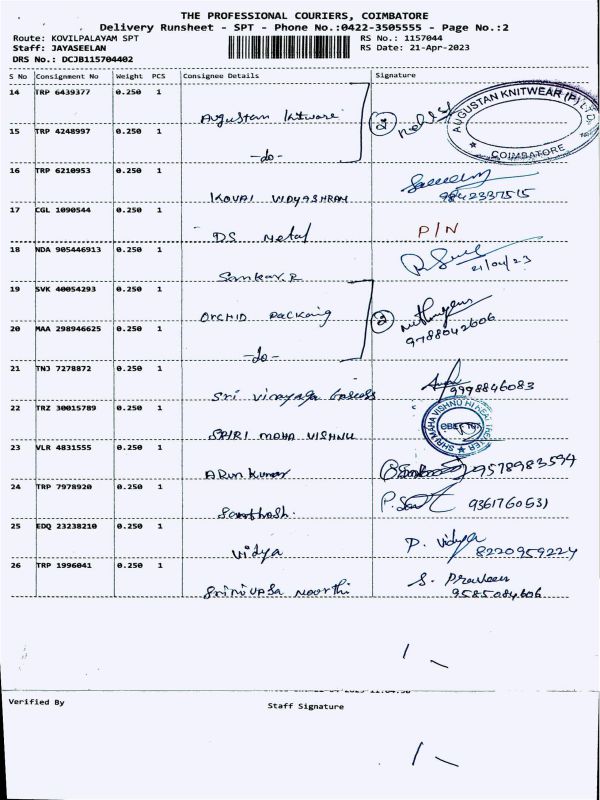 THE PROFESSIONAL COURIERS, COIMBATORE
Delivery Runsheet - SPT - Phone No.:0422-3505555 - Page No.:2
Route: KOVILPALAYAM SPT RS No.: 1157044
Staff: JAYASEELAN RS Date: 21-Apr-2023
DRS No.: DCJB115704402
S No Consignment No Weight PCS Consignee Details Signature
14 TRP 6439377 0.250 1
Augustan
AUGUSTAN KNITWEAR (P) LTD.
COIMBATORE
15 TRP 4248997 0.250 1
-do-
2
16 TRP 6210953 0.250 1
KOVAI VIDYASHRAM
9842337515
17 CGL 1090544 0.250 1
DS Metal P/N
18 NDA 905446913 0.250 1
Sankar.R 21/04/23
19 SVK 40054293 0.250 1
ORCHID Packaing
2
20 MAA 298946625 0.250 1
-do- 9788042606
21 TNJ 7278872 0.250 1
Sri vinayaga 9998846083
22 TRZ 30015789 0.250 1
SHRI MAHA VISHNU
SHRI MAHA VISHNU
23 VLR 4831555 0.250 1
ARun Kumar 9578983594
24 TRP 7978920 0.250 1
Santhosh. 9361760531
25 EDQ 23238210 0.250 1
Vidya P. Vidya
8220959224
26 TRP 1996041 0.250 1
Srinivasa Moorthi S. Praveen
9585084606
Verified By Staff Signature